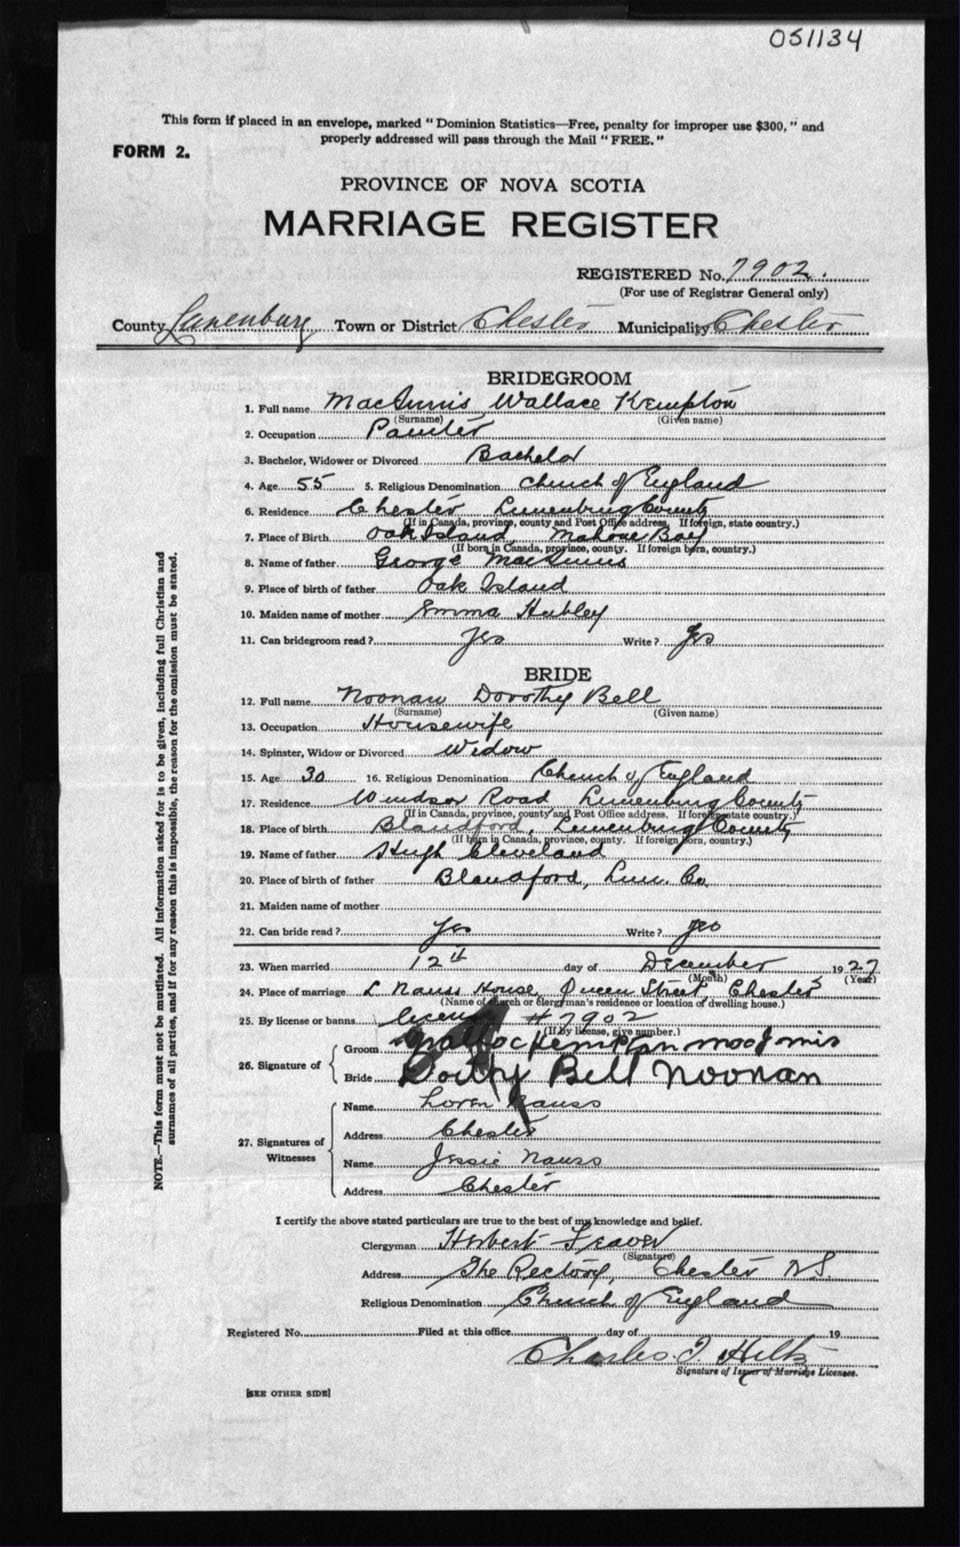 051134
This form if placed in an envelope, marked "Dominion Statistics—Free, penalty for improper use $300," and
properly addressed will pass through the Mail "FREE."
FORM 2.
PROVINCE OF NOVA SCOTIA
MARRIAGE REGISTER
REGISTERED No. 7902.
(For use of Registrar General only)
County Lunenburg Town or District Chester Municipality Chester
BRIDEGROOM
1. Full name MacInnis Wallace Kempton
(Surname) (Given name)
2. Occupation Painter
3. Bachelor, Widower or Divorced Bachelor
4. Age 55 5. Religious Denomination Church of England
6. Residence Chester Lunenburg County
(If in Canada, province, county and Post Office address. If foreign, state country.)
7. Place of Birth Oak Island, Mahone Bay
(If born in Canada, province, county. If foreign born, country.)
8. Name of father George MacInnis
9. Place of birth of father Oak Island
10. Maiden name of mother Emma Hubley
11. Can bridegroom read? Yes Write? Yes
BRIDE
12. Full name Noonan Dorothy Bell
(Surname) (Given name)
13. Occupation Housewife
14. Spinster, Widow or Divorced Widow
15. Age 30 16. Religious Denomination Church of England
17. Residence Windsor Road Lunenburg County
(If in Canada, province, county and Post Office address. If foreign state country.)
18. Place of birth Blandford, Lunenburg County
(If born in Canada, province, county. If foreign born, country.)
19. Name of father Hugh Cleveland
20. Place of birth of father Blandford, Lun. Co.
21. Maiden name of mother
22. Can bride read? Yes Write? Yes
23. When married 12th day of December 1927
(Month) (Year)
24. Place of marriage L Nauss House, Queen Street, Chester
(Name of church or clergyman's residence or location of dwelling house.)
25. By license or banns License #7902
(If by license, give number.)
26. Signature of
Groom Kempton
Bride Dorthy Bell Noonan
27. Signatures of Witnesses
Name Loren Nauss
Address Chester
Name Jessie Nauss
Address Chester
I certify the above stated particulars are true to the best of my knowledge and belief.
Clergyman Herbert Leaver
(Signature)
Address The Rectory, Chester N.S.
Religious Denomination Church of England
Registered No. Filed at this office day of 19
Charles Hiltz
Signature of Issuer of Marriage Licenses.
[SEE OTHER SIDE]
NOTE.—This form must not be mutilated. All information asked for is to be given, including full Christian and
surnames of all parties, and if for any reason this is impossible, the reason for the omission must be stated.